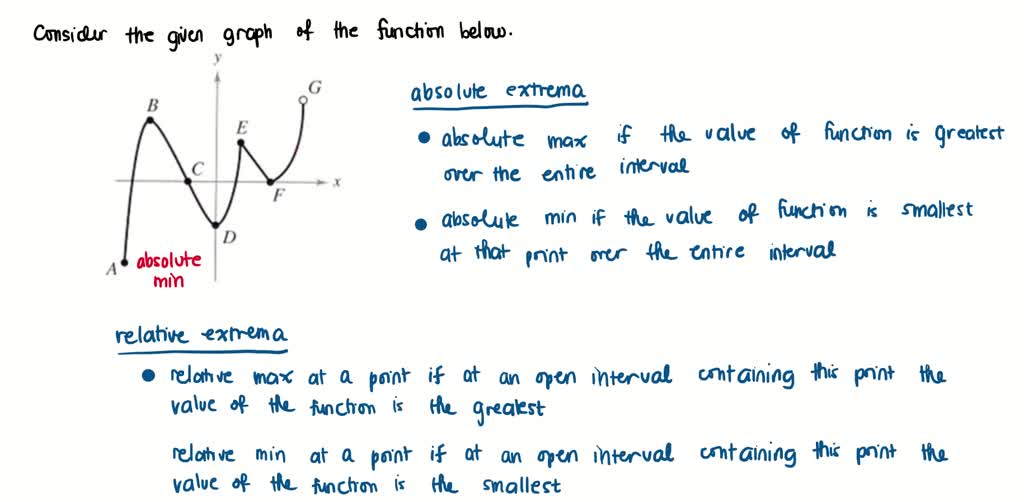 Consider the given graph of the function below.
y
G
B
E
C
x
F
D
A
absolute
min
absolute extrema
• absolute max if the value of function is greatest
over the entire interval
• absolute min if the value of function is smallest
at that print over the entire interval
relative extrema
• relative max at a point if at an open interval containing this print the
value of the function is the greatest
relative min at a point if at an open interval containing this print the
value of the function is the smallest